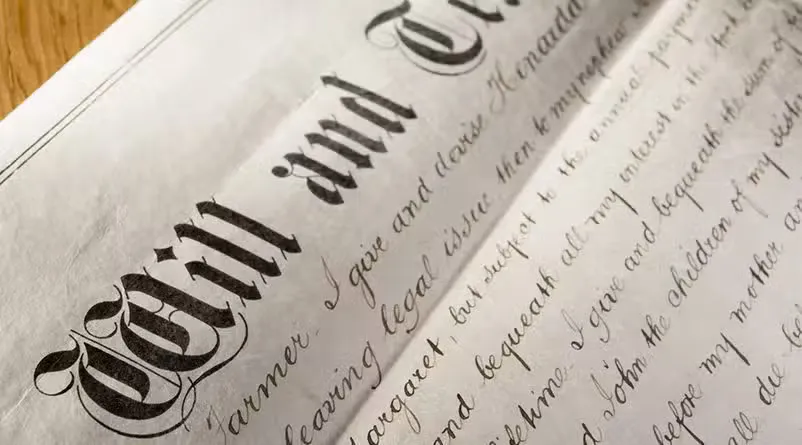 Will and Te
Farmer. I give and devise
leaving legal issue then to my nephew
argaret, but subject to the annual payment
and bequeath all my interest in the stock
fetime. I give and bequeath the sum of
d John the children of my sister
before my mother an
ll die be